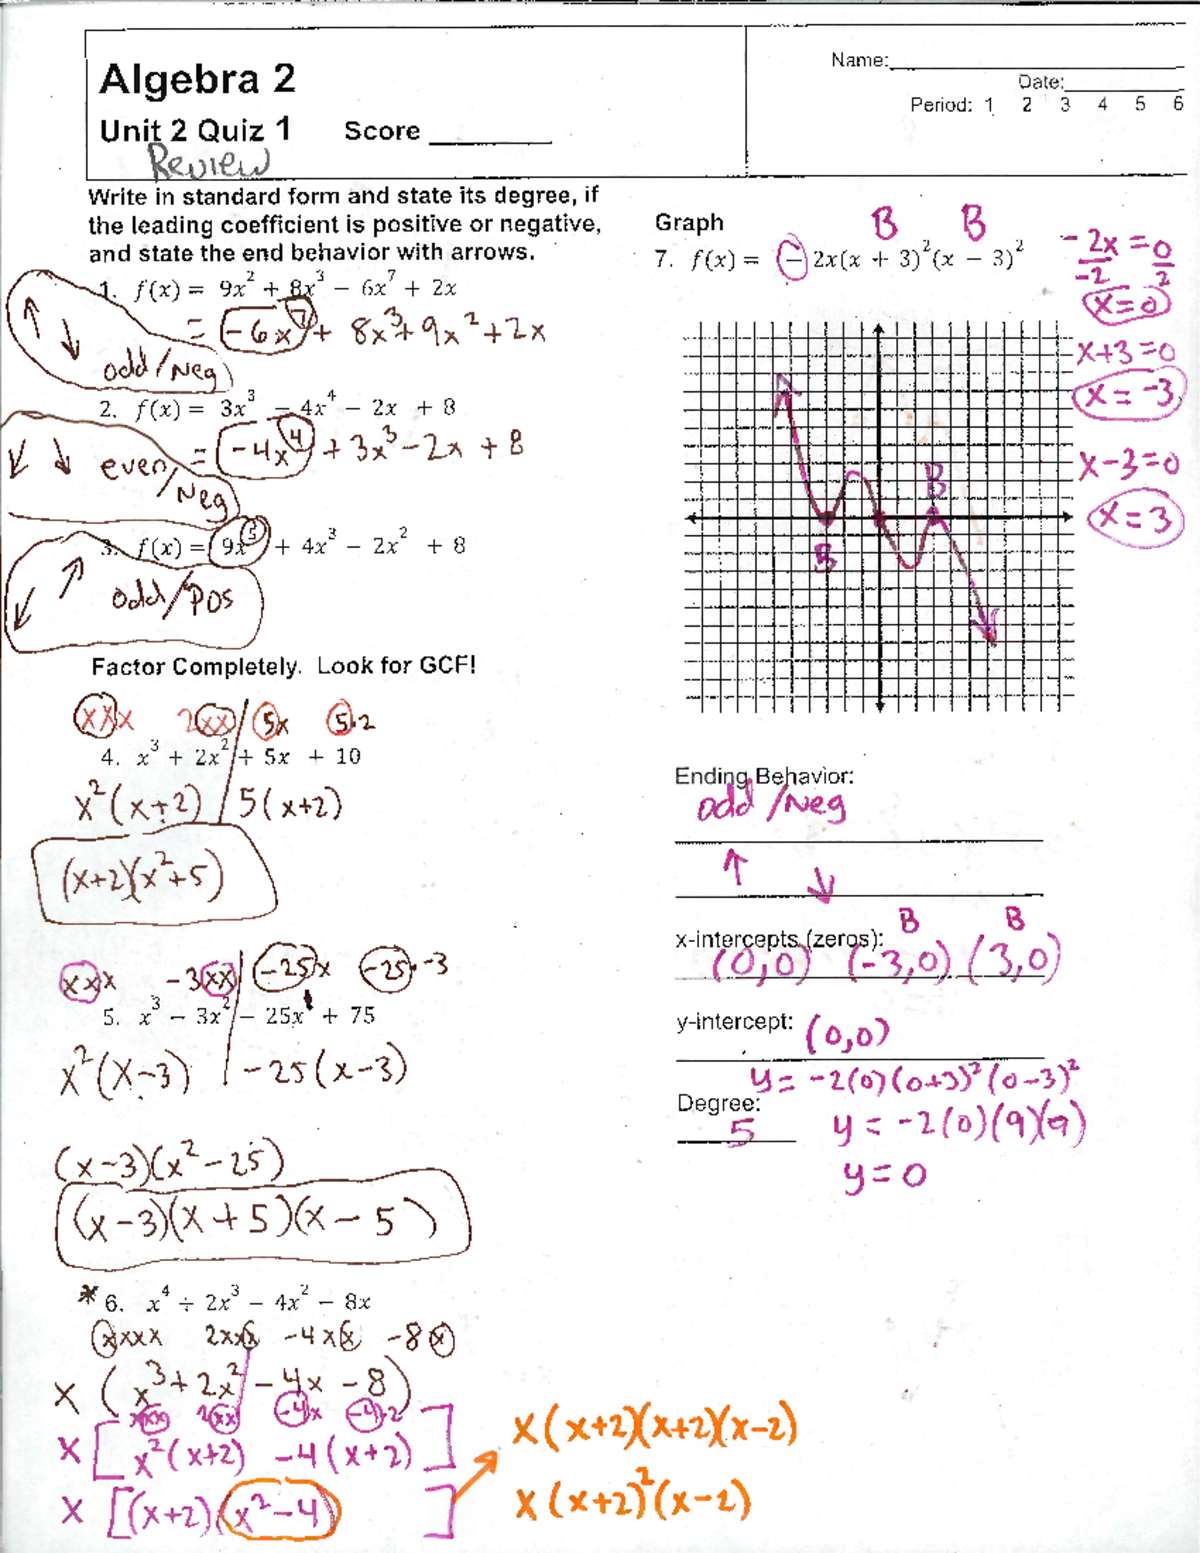 Algebra 2
Unit 2 Quiz 1 Score ________
Review
Name:________
Date:________
Period: 1 2 3 4 5 6
Write in standard form and state its degree, if
the leading coefficient is positive or negative,
and state the end behavior with arrows.
1. f(x) = 9x² + 8x³ − 6x⁷ + 2x
↑ ↓ = -6x⁷ + 8x³ + 9x² + 2x
odd/Neg
2. f(x) = 3x³ − 4x⁴ − 2x + 8
↙ ↓ even/Neg = -4x⁴ + 3x³ - 2x + 8
3. f(x) = 9x⁵ + 4x³ − 2x² + 8
↙ ↗ odd/Pos
Factor Completely. Look for GCF!
xxx 2xx / 5x 5·2
4. x³ + 2x² + 5x + 10
x²(x+2) / 5(x+2)
(x+2)(x²+5)
xxx -3xx -25x -25·-3
5. x³ − 3x² − 25x¹ + 75
x²(x-3) / -25(x-3)
(x-3)(x²-25)
(x-3)(x+5)(x-5)
*6. x⁴ ÷ 2x³ − 4x² − 8x
xxxx 2xxx -4xx -8x
x (x³+2x²-4x-8)
xxx 2xx -4x -4·2
x [x²(x+2) -4(x+2)]
x [(x+2)(x²-4) ]
x(x+2)(x+2)(x-2)
x(x+2)²(x-2)
Graph
B B
7. f(x) = − 2x(x + 3)²(x − 3)²
-2x=0
-2 2
x=0
x+3=0
x=-3
x-3=0
x=3
B
B
Ending Behavior:
odd/Neg
↑ ↓
B B
x-intercepts (zeros):
(0,0) (-3,0) (3,0)
y-intercept: (0,0)
y = -2(0)(0+3)²(0-3)²
Degree:
5
y = -2(0)(9)(9)
y=0